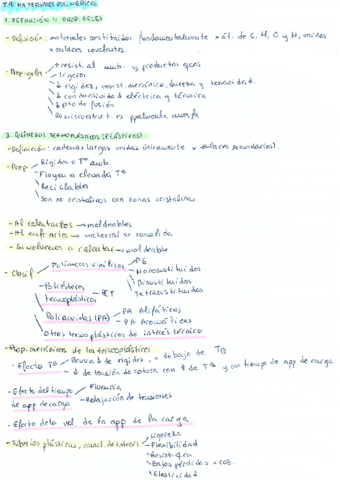 T.4: MATERIALES POLIMÉRICOS
1. DEFINICIÓN Y PROP. GRLES
- Definición: materiales constituidos fundamentalmente x át. de C, H, O y N, unidos
x enlaces covalentes.
- Prop. grles
↑ resist. al amb. y productos qcos
ligeros
↓ rigidez, resist. mecánica, dureza y tenacidad.
↓ conductividad eléctrica y térmica
↓ pto de fusión
su microestruct. es ppalmente amorfa
2. POLÍMEROS TERMOPLÁSTICOS (PLÁSTICOS)
- Definición: cadenas largas unidas únicamente x enlaces secundarios.
- Prop
Rígidos a Tª amb
Fluyen a elevada Tª
Reciclables
Son no cristalinos con zonas cristalinas
- Al calentarlos → moldeables
- Al enfriarlos → material se consolida
- Si volvemos a calentar → moldeable
- Clasif
Polímeros vinílicos
PE
Monosustituidos
Disustituidos
Tetrasustituidos
Poliésteres termoplásticos - PET
Poliamidas (PA)
PA Alifáticas
PA Aromáticas
Otros termoplásticos de interés técnico
- Prop. mecánicas de los termoplásticos
- Efecto Tª
↓ de tensión de rotura con ↑ de Tª y con tiempo de app de carga
- Efecto del tiempo de app de carga
Fluencia
Relajación de tensiones
- Efecto de la vel. de la app de la carga
- Tuberías plásticas, caract. de interés
Ligereza
Flexibilidad
Resist. qca
Bajas pérdidas x roz.
Elasticidad